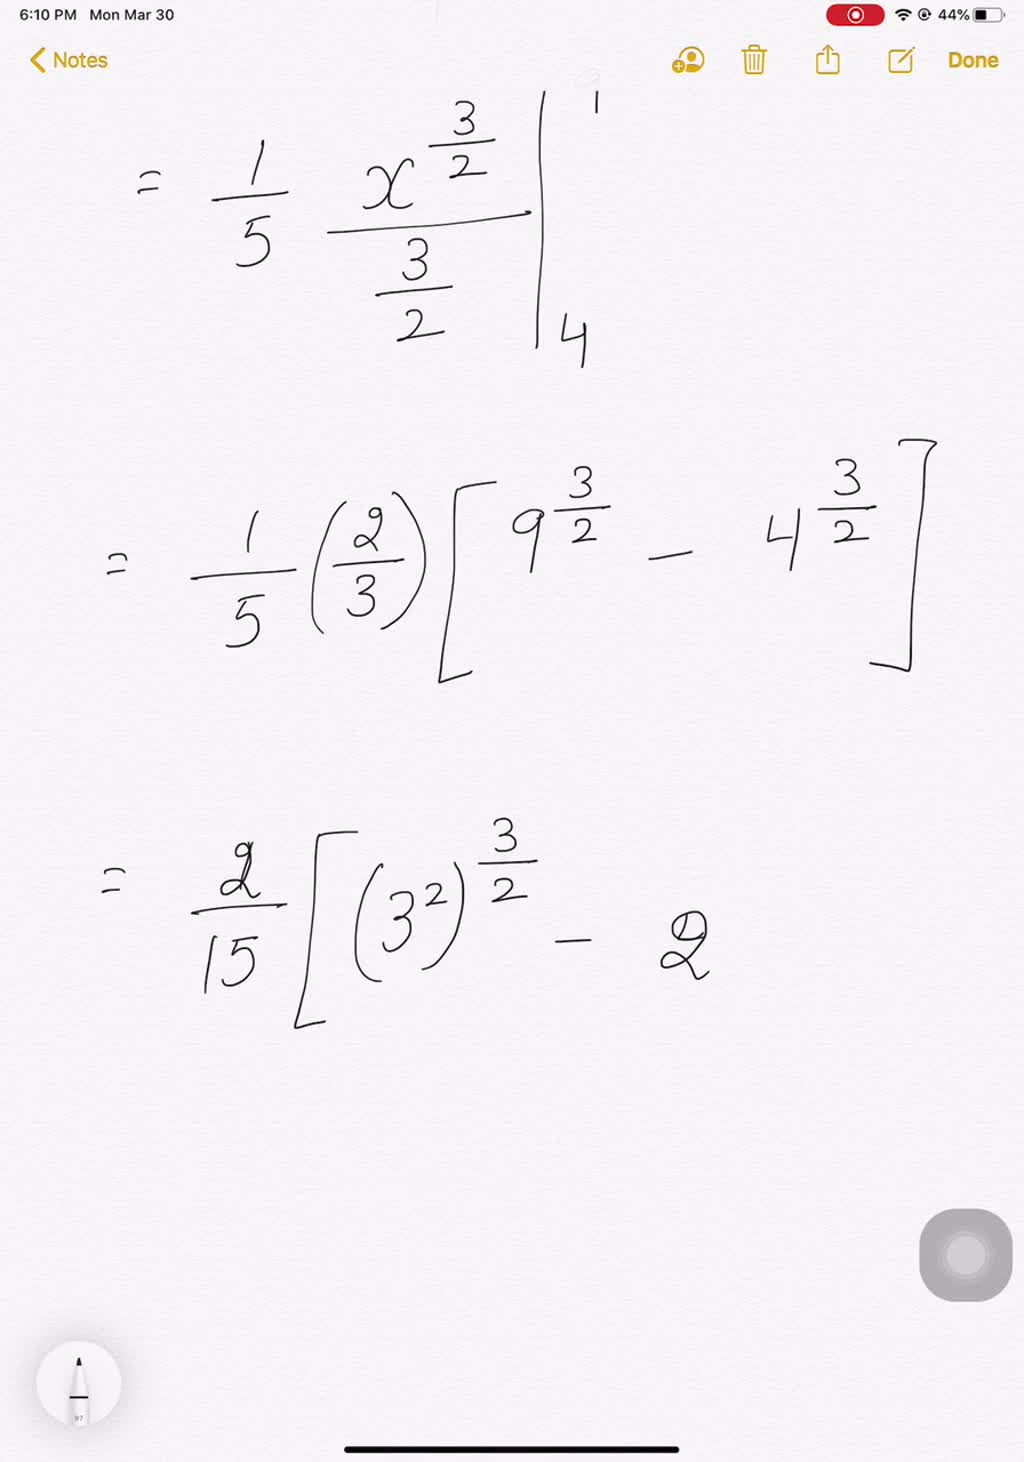 6:10 PM Mon Mar 30 44%
Notes Done
= 1/5 x^(3/2)/(3/2) | 4
= 1/5 (2/3) [9^(3/2) - 4^(3/2)]
= 2/15 [(3^2)^(3/2) - 2
97